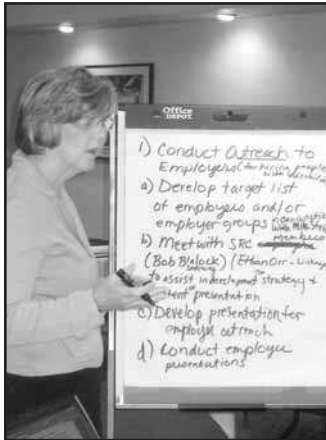 Office
DEPOT
1) Conduct Outreach to
Employers (for hiring people
with
a) Develop target list
of employers and/or
employer groups
b) Meet with SRC
(Bob Blalock) (Ethan Orr
to assist in development strategy &
presentation
c) Develop presentation for
employer outreach
d) Conduct employer
presentations